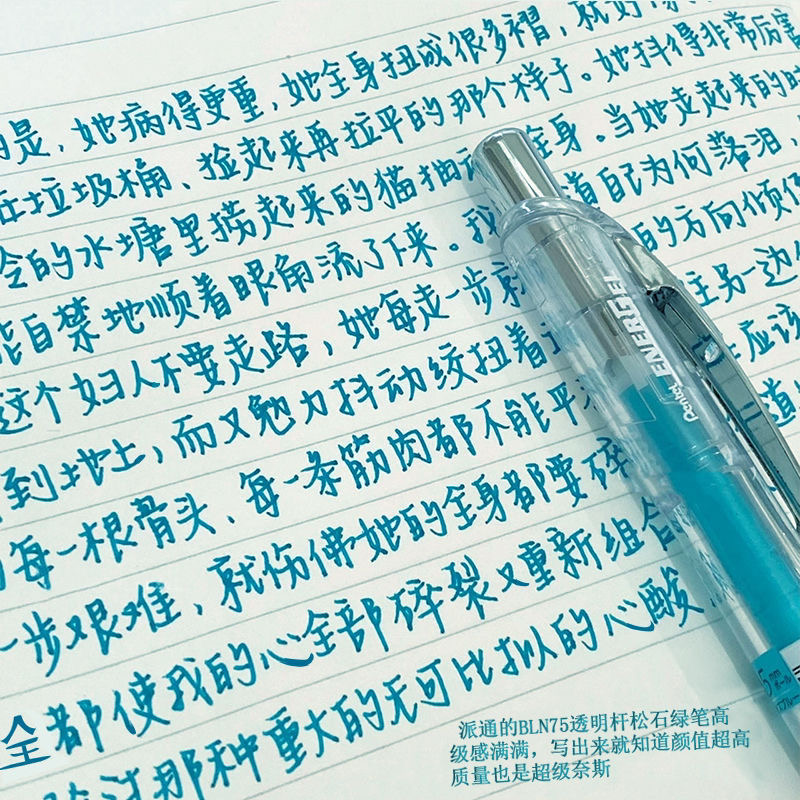 是，她病得更重，她全身扭成很多褶，就好像
在垃圾桶、捡起来再拉平的那个样子。她抖得非常厉害
的水塘里捞起来的猫抽动全身。当她走起来的时
自禁地顺着眼角流了下来。我 道自己为何落泪，
这个妇人不要走路，她每走一步就 的方向倾
到地上，而又勉力抖动绞扭着 另一边
每一根骨头、每一条筋肉都不能平 应该
一步艰难，就仿佛她的全身都要碎 道
全都使我的心全部碎裂又重新组合
那种重大的无可比拟的心酸
Pentel ENERGEL
5mm
ボール
派通的BLN75透明杆松石绿笔高
级感满满，写出来就知道颜值超高
质量也是超级奈斯